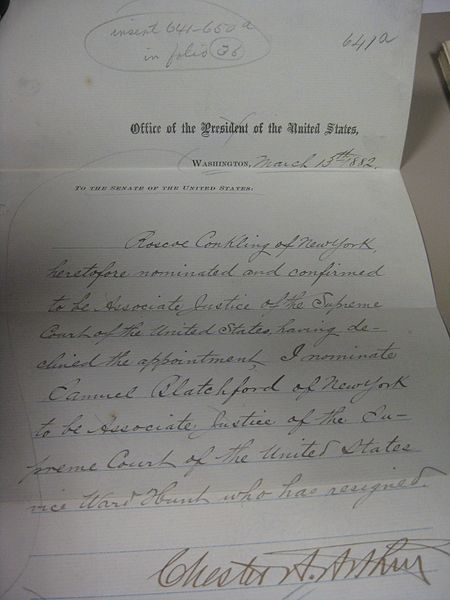 insert 641-650a
in folio 36
641a
Office of the President of the United States,
Washington, March 13th 1882.
To the Senate of the United States:
Roscoe Conkling of New York,
heretofore nominated and confirmed
to be Associate Justice of the Supreme
Court of the United States, having de-
clined the appointment, I nominate
Samuel Blatchford of New York
to be Associate Justice of the Su-
preme Court of the United States
vice Ward Hunt who has resigned.
Chester A. Arthur